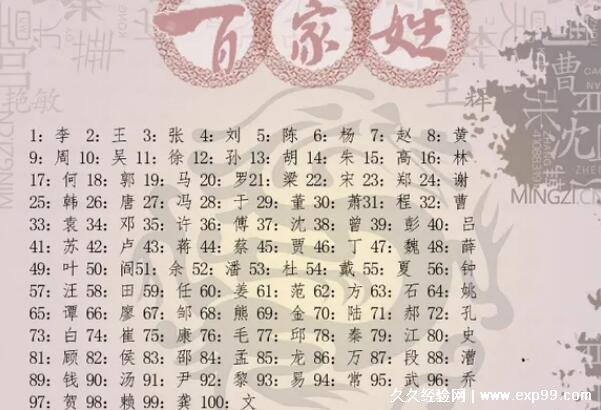 百家姓
1: 李 2: 王 3: 张 4: 刘 5: 陈 6: 杨 7: 赵 8: 黄
9: 周 10: 吴 11: 徐 12: 孙 13: 胡 14: 朱 15: 高 16: 林
17: 何 18: 郭 19: 马 20: 罗21: 梁 22: 宋 23: 郑 24: 谢
25: 韩 26: 唐 27: 冯 28: 于 29: 董 30: 萧31: 程 32: 曹
33: 袁 34: 邓 35: 许 36: 傅 37: 沈 38: 曾 39: 彭 40: 吕
41: 苏 42: 卢 43: 蒋 44: 蔡 45: 贾 46: 丁 47: 魏 48: 薛
49: 叶 50: 阎51: 余 52: 潘 53: 杜 54: 戴 55: 夏 56: 钟
57: 汪 58: 田 59: 任 60: 姜 61: 范 62: 方 63: 石 64: 姚
65: 谭 66: 廖 67: 邹 68: 熊 69: 金 70: 陆 71: 郝 72: 孔
73: 白 74: 崔 75: 康 76: 毛 77: 邱 78: 秦 79: 江 80: 史
81: 顾 82: 侯 83: 邵 84: 孟 85: 龙 86: 万 87: 段 88: 漕
89: 钱 90: 汤 91: 尹 92: 黎 93: 易 94: 常 95: 武 96: 乔
97: 贺 98: 赖 99: 龚 100: 文
艳敏
MINGZI.CN
王
辉
曹
沈
MINGZI.CN
久久经验网 | www.exp99.com